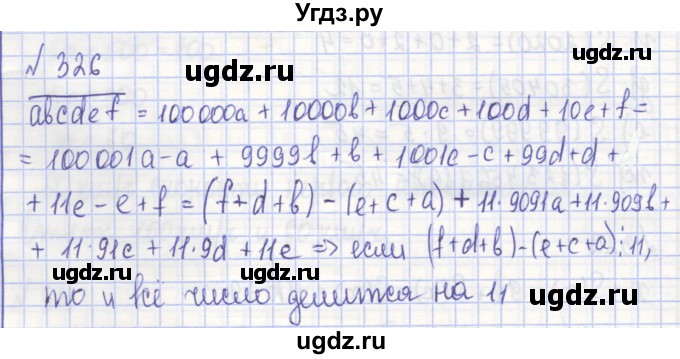 Угдз.ру
№ 326
ugdz.ru
ugdz.ru
abcdef = 100000a + 10000b + 1000c + 100d + 10e + f =
ugdz.ru
= 100001a - a + 9999b + b + 1001c - c + 99d + d +
ugdz.ru
+ 11e - e + f = (f + d + b) - (e + c + a) + 11·9091a + 11·909b +
+ 11·91c + 11·9d + 11e => если (f + d + b) - (e + c + a) ⋮ 11,
ugdz.ru
ugdz.ru
то и всё число делится на 11
ugdz.ru